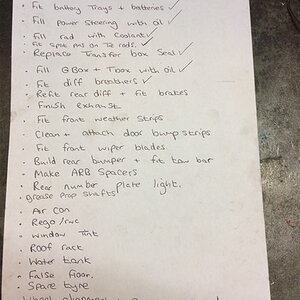 • Fit battery trays + batteries ✓
• Fill power steering with oil ✓
• Fill rad with Coolant ✓
• Fit split pins on Tie rods. ✓
• Replace Transfer box Seal ✓
• Fill GBox + Tbox with Oil ✓
• Fit diff breathers ✓
• Refit rear diff + fit brakes
• Finish exhaust
• Fit front weather strips
• Clean + attach door bump strips
• Fit front wiper blades
• Build rear bumper + fit tow bar
• Make ARB Spacers
• Rear number plate light.
• Grease Prop shafts
• Air con
• Rego / rwc
• Window Tint
• Roof rack
• Water tank
• False floor.
• Spare tyre
Wheel alignment